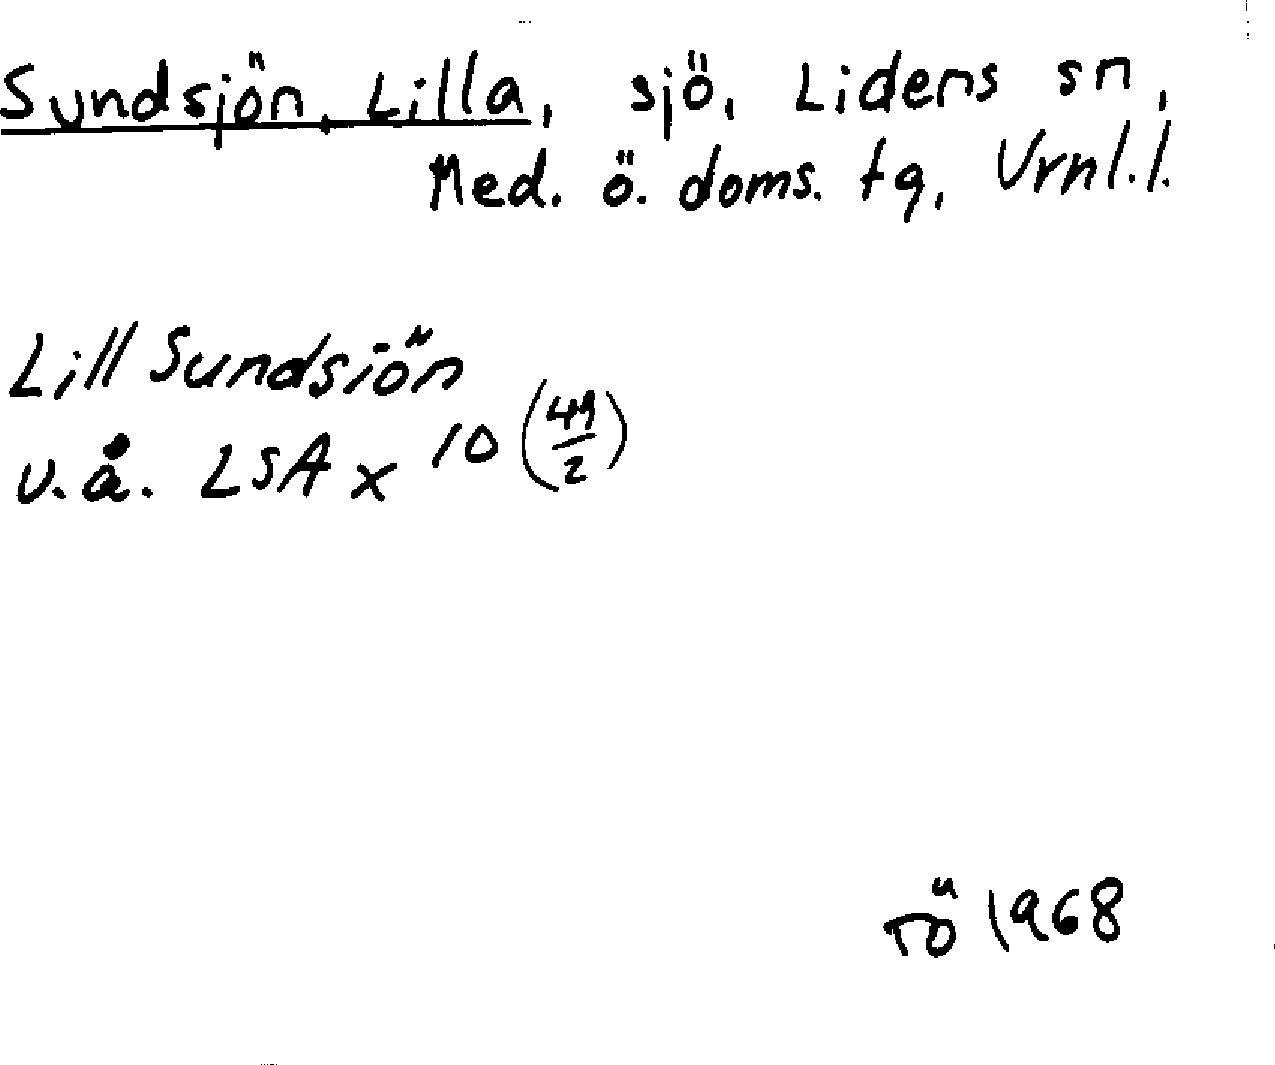 Sundsjön, Lilla, sjö, Lidens sn,
Med. ö. doms. tg, Vrnl. l.
Lill Sundsiön
u.å. LSA x 10 (49/2)
rö 1968